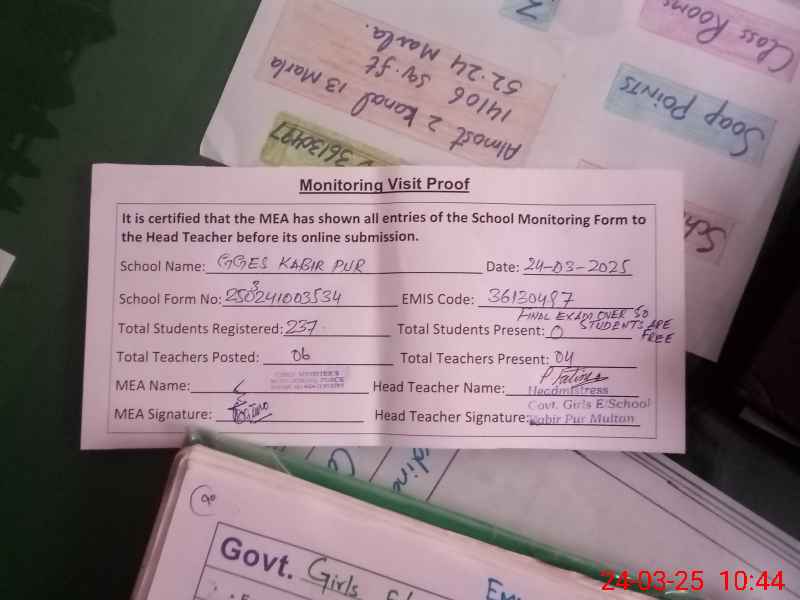 Class Rooms
Soap Points
Almost 2 Kanal 13 Marla
14106 sq.ft
52.24 Marla.
36130487
Monitoring Visit Proof
It is certified that the MEA has shown all entries of the School Monitoring Form to
the Head Teacher before its online submission.
School Name: GGES KABIR PUR Date: 24-03-2025
School Form No: 250241003534 EMIS Code: 36130487
FINAL EXAM OVER SO
STUDENTS ARE
FREE
Total Students Registered: 237 Total Students Present: 0
Total Teachers Posted: 06 Total Teachers Present: 04
MEA Name: Head Teacher Name:
Headmistress
Govt. Girls E/School
MEA Signature: Head Teacher Signature: Kabir Pur Multan
Govt. Girls
24-03-25 10:44